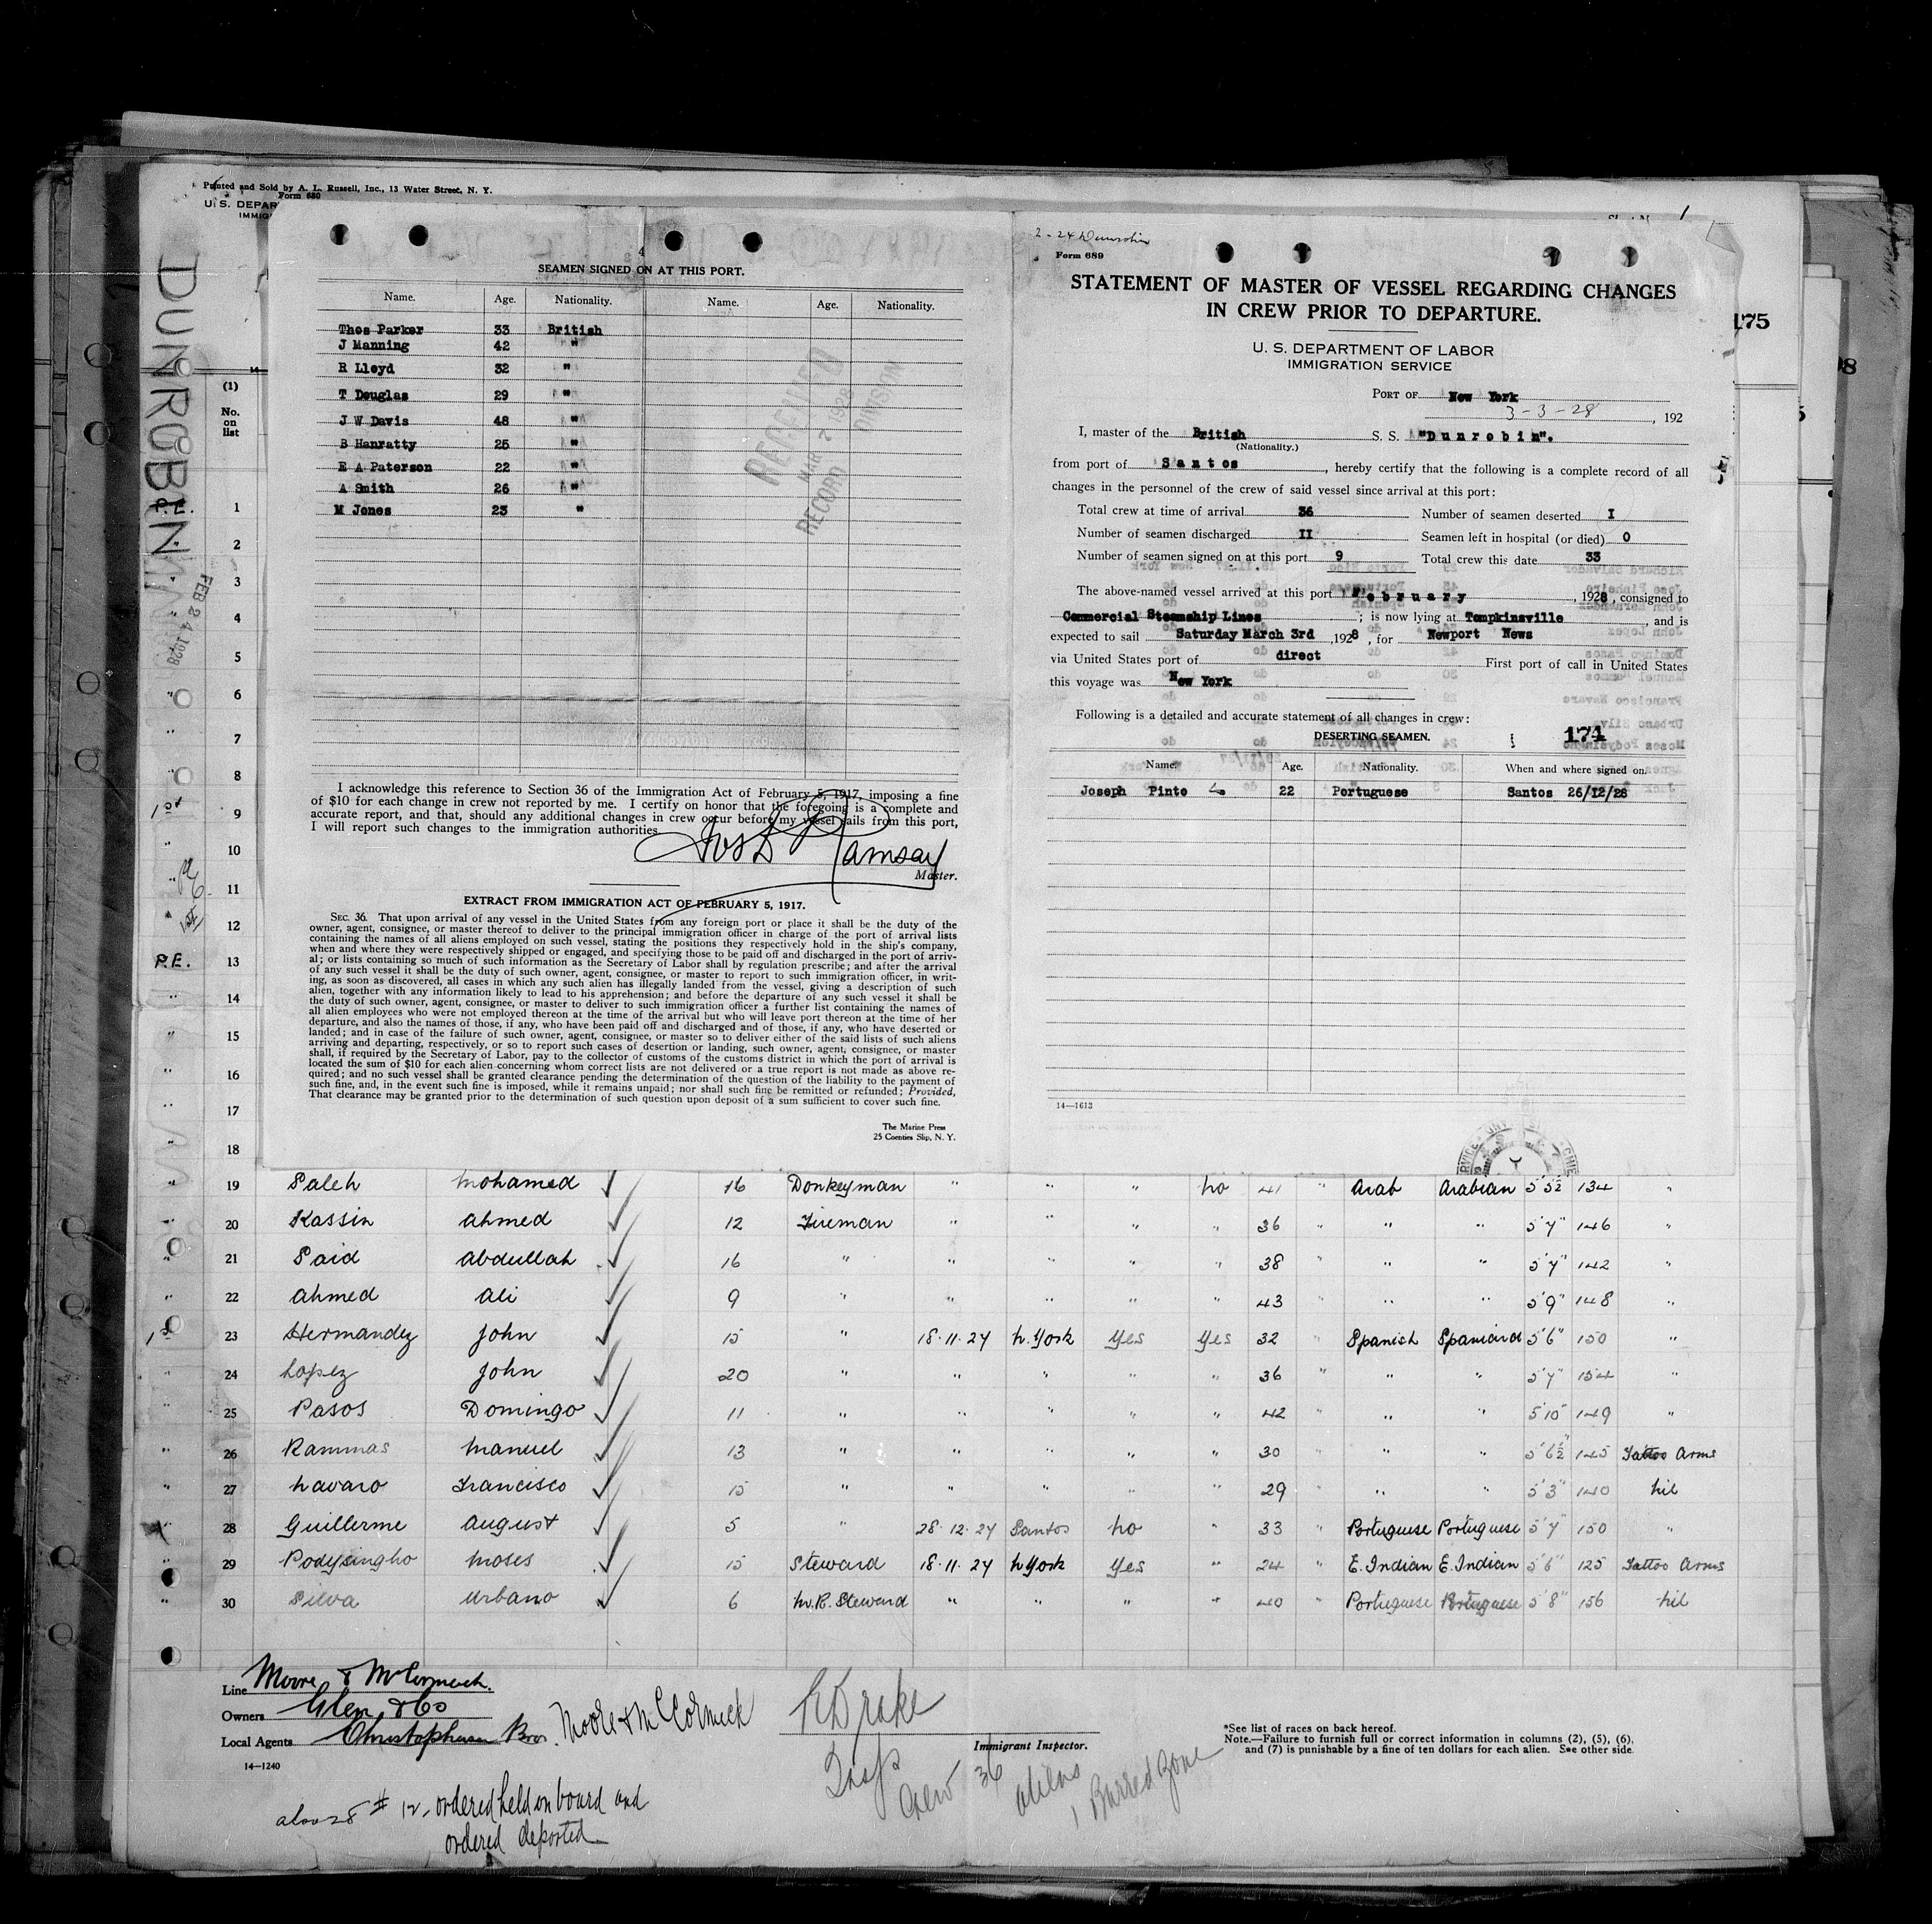 Printed and Sold by A. L. Russell, Inc., 13 Water Street, N. Y.
Form 680
U. S. DEPAR
IMMIG
DUNROBIN
FEB 24 1928
(1)
No.
on
list
4
SEAMEN SIGNED ON AT THIS PORT.
Name. Age. Nationality. Name. Age. Nationality.
Thos Parker 33 British
J Manning 42 "
R Lloyd 32 "
T Douglas 29 "
J W Davis 48 "
B Hanratty 25 "
E A Paterson 22 "
A Smith 26 "
M Jones 23 "
RECEIVED
MAR 7 1928
RECORD DIVISION
I acknowledge this reference to Section 36 of the Immigration Act of February 5, 1917, imposing a fine
of $10 for each change in crew not reported by me. I certify on honor that the foregoing is a complete and
accurate report, and that, should any additional changes in crew occur before my vessel sails from this port,
I will report such changes to the immigration authorities.
Ramsay
Master.
EXTRACT FROM IMMIGRATION ACT OF FEBRUARY 5, 1917.
SEC. 36. That upon arrival of any vessel in the United States from any foreign port or place it shall be the duty of the
owner, agent, consignee, or master thereof to deliver to the principal immigration officer in charge of the port of arrival lists
containing the names of all aliens employed on such vessel, stating the positions they respectively hold in the ship's company,
when and where they were respectively shipped or engaged, and specifying those to be paid off and discharged in the port of arriv-
al; or lists containing so much of such information as the Secretary of Labor shall by regulation prescribe; and after the arrival
of any such vessel it shall be the duty of such owner, agent, consignee, or master to report to such immigration officer, in writ-
ing, as soon as discovered, all cases in which any such alien has illegally landed from the vessel, giving a description of such
alien, together with any information likely to lead to his apprehension; and before the departure of any such vessel it shall be
the duty of such owner, agent, consignee, or master to deliver to such immigration officer a further list containing the names of
all alien employees who were not employed thereon at the time of the arrival but who will leave port thereon at the time of her
departure, and also the names of those, if any, who have been paid off and discharged and of those, if any, who have deserted or
landed; and in case of the failure of such owner, agent, consignee, or master so to deliver either of the said lists of such aliens
arriving and departing, respectively, or so to report such cases of desertion or landing, such owner, agent, consignee, or master
shall, if required by the Secretary of Labor, pay to the collector of customs of the customs district in which the port of arrival is
located the sum of $10 for each alien concerning whom correct lists are not delivered or a true report is not made as above re-
quired; and no such vessel shall be granted clearance pending the determination of the question of the liability to the payment of
such fine, and, in the event such fine is imposed, while it remains unpaid; nor shall such fine be remitted or refunded; Provided,
That clearance may be granted prior to the determination of such question upon deposit of a sum sufficient to cover such fine.
The Marine Press
25 Coenties Slip, N. Y.
1
2-24 Dunrobin
Form 689
STATEMENT OF MASTER OF VESSEL REGARDING CHANGES
IN CREW PRIOR TO DEPARTURE.
U. S. DEPARTMENT OF LABOR
IMMIGRATION SERVICE
PORT OF New York
3-3-28, 192
I, master of the British S. S. "Dunrobin".
(Nationality.)
from port of Santos, hereby certify that the following is a complete record of all
changes in the personnel of the crew of said vessel since arrival at this port:
Total crew at time of arrival 36 Number of seamen deserted I
Number of seamen discharged II Seamen left in hospital (or died) 0
Number of seamen signed on at this port 9 Total crew this date 33
The above-named vessel arrived at this port February, 1928, consigned to
Commercial Steamship Lines; is now lying at Tompkinsville, and is
expected to sail Saturday March 3rd, 1928, for Newport News
via United States port of direct First port of call in United States
this voyage was New York
Following is a detailed and accurate statement of all changes in crew:
DESERTING SEAMEN. 174
Name. Age. Nationality. When and where signed on.
Joseph Pinto 22 Portuguese Santos 26/12/28
14—1613
175
P.E. 1
2
3
4
5
6
7
8
1st 9
10
11
12
P.E. 13
14
15
16
17
18
19 Saleh Mohamed 16 Donkeyman " " " no 41 " Arab Arabian 5'5½ 134 "
20 Kassin Ahmed 12 Fireman " " " " 36 " " " 5'7" 146 "
21 Said Abdullah 16 " " " " " 38 " " " 5'7" 142 "
22 Ahmed Ali 9 " " " " " 43 " " " 5'9" 148 "
23 Hermandez John 15 " 18.11.27 N. York Yes Yes 32 " Spanish Spaniard 5'6" 150 "
24 Lopez John 20 " " " " " 36 " " " 5'7" 154 "
25 Pasos Domingo 11 " " " " " 42 " " " 5'10" 149 "
26 Rammas Manuel 13 " " " " " 30 " " " 5'6½" 145 Tattoo Arms
27 Navaro Francisco 15 " " " " " 29 " " " 5'3" 140 Nil
28 Guillerme August 5 " 28.12.27 Santos no " 33 " Portuguese Portuguese 5'7" 150 "
29 Podysingho Moses 15 Steward 18.11.27 N York Yes " 24 " E. Indian E. Indian 5'6" 125 Tattoo Arms
30 Silva Urbano 6 M.R. Steward " " " " 40 " Portuguese Portuguese 5'8" 156 Nil
Line Moore & McCormack.
Owners Glen & Co
Local Agents Christopherson Bros. Moore & McCormack
14—1240
Drake
Immigrant Inspector.
Insp
Crew 36 aliens
1 Barred Zone
*See list of races on back hereof.
Note.—Failure to furnish full or correct information in columns (2), (5), (6),
and (7) is punishable by a fine of ten dollars for each alien. See other side.
# 12, ordered held on board and
ordered deported